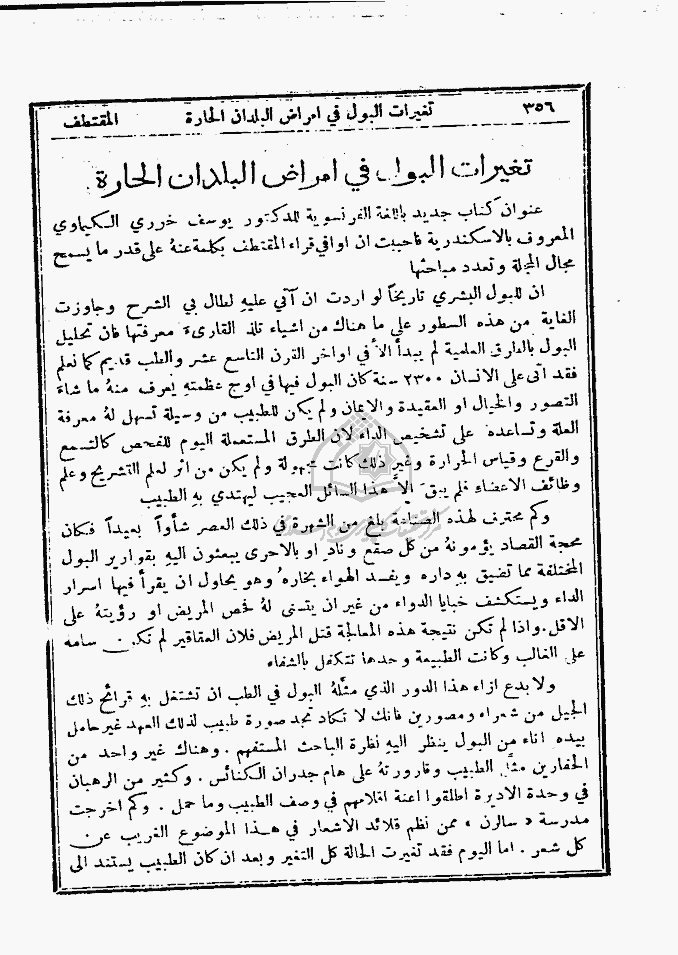 ٣٥٦ تغيرات البول في امراض البلدان الحارة المقتطف
تغيرات البول في امراض البلدان الحارة
عنوان كتاب جديد باللغة الفرنسوية للدكتور يوسف خوري الكيماوي
المعروف بالاسكندرية فاحببت ان اوافي قراء المقتطف بكلمة عنهُ على قدر ما يسمح
مجال المجلة وتعدد مباحثها
ان للبول البشري تاريخاً لو اردت ان آتي عليهِ لطال بي الشرح وجاوزت
الغاية من هذه السطور على ما هناك من اشياء تلذ القارىء معرفتها فان تحليل
البول بالطرق العلمية لم يبدأ الاَّ في اواخر القرن التاسع عشر والطب قديم كما نعلم
فقد اتى على الانسان ٢٣٠٠ سنة كان البول فيها في اوج عظمتهِ يعرف منهُ ما شاء
التصور والخيال او العقيدة والايمان ولم يكن للطبيب من وسيلة تسهل لهُ معرفة
العلة وتساعده على تشخيص الداء لان الطرق المستعملة اليوم للفحص كالتسمع
والقرع وقياس الحرارة وغير ذلك كانت مجهولة ولم يكن من اثر لعلم التشريح وعلم
وظائف الاعضاء فلم يبقَ الاَّ هذا السائل العجيب ليهتدي بهِ الطبيب
وكم محترف لهذه الصناعة بلغ من الشهرة في ذلك العصر شأواً بعيداً فكان
محجة القصاد يؤمونهُ من كل صقع ونادٍ او بالاحرى يبعثون اليهِ بقوارير البول
المختلفة مما تضيق بهِ داره ويفسد الهواء بخاره وهو يحاول ان يقرأ فيها اسرار
الداء ويستكشف خبايا الدواء من غير ان يتسنى لهُ فحص المريض او رؤيتهُ على
الاقل. واذا لم تكن نتيجة هذه المعالجة قتل المريض فلان العقاقير لم تكن سامه
على الغالب وكانت الطبيعة وحدها تتكفل بالشفاء
ولا بدع ازاء هذا الدور الذي مثَّلهُ البول في الطب ان تشتغل بهِ قرائح ذلك
الجيل من شعراء ومصورين فانك لا تكاد تجد صورة طبيب لذلك العهد غير حامل
بيده اناء من البول ينظر اليهِ نظرة الباحث المستفهم. وهناك غير واحد من
الحفارين مثَّل الطبيب وقارورتهُ على هام جدران الكنائس. وكثير من الرهبان
في وحدة الاديرة اطلقوا اعنة اقلامهم في وصف الطبيب وما حمل. وكم اخرجت
مدرسة «سالرن» ممن نظم قلائد الاشعار في هذا الموضوع الغريب عن
كل شعر. اما اليوم فقد تغيرت الحالة كل التغير وبعد ان كان الطبيب يستند الى